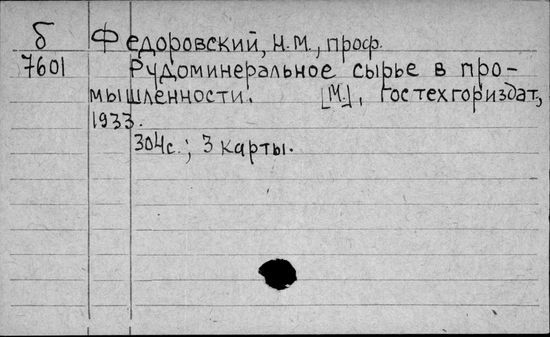 б Федоровский, Н.М., проф.
7601 Рудоминеральное сырье в про-
мышленности. [М.], Гостехгориздат,
1933.
304с.; 3 карты.